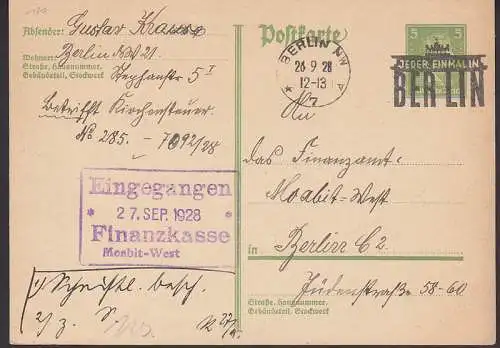 Absender: Gustav Krause
Wohnort: Berlin NW 21.
Straße, Hausnummer,
Gebäudeteil, Stockwerk
Stephanstr 5 I
Betrifft Kirchensteuer
No 285. - 7092/28
Eingegangen
* 27. SEP. 1928 *
Finanzkasse
Moabit-West
1) Schriftl. besch.
2) z. S.
Postkarte
BERLIN NW
26 9 28
12-13
* P
5 5
JEDER EINMAL IN
BERLIN
An
das Finanzamt
Moabit-West
in Berlin C 2
Jüdenstraße 58-60
Straße, Hausnummer,
Gebäudeteil, Stockwerk